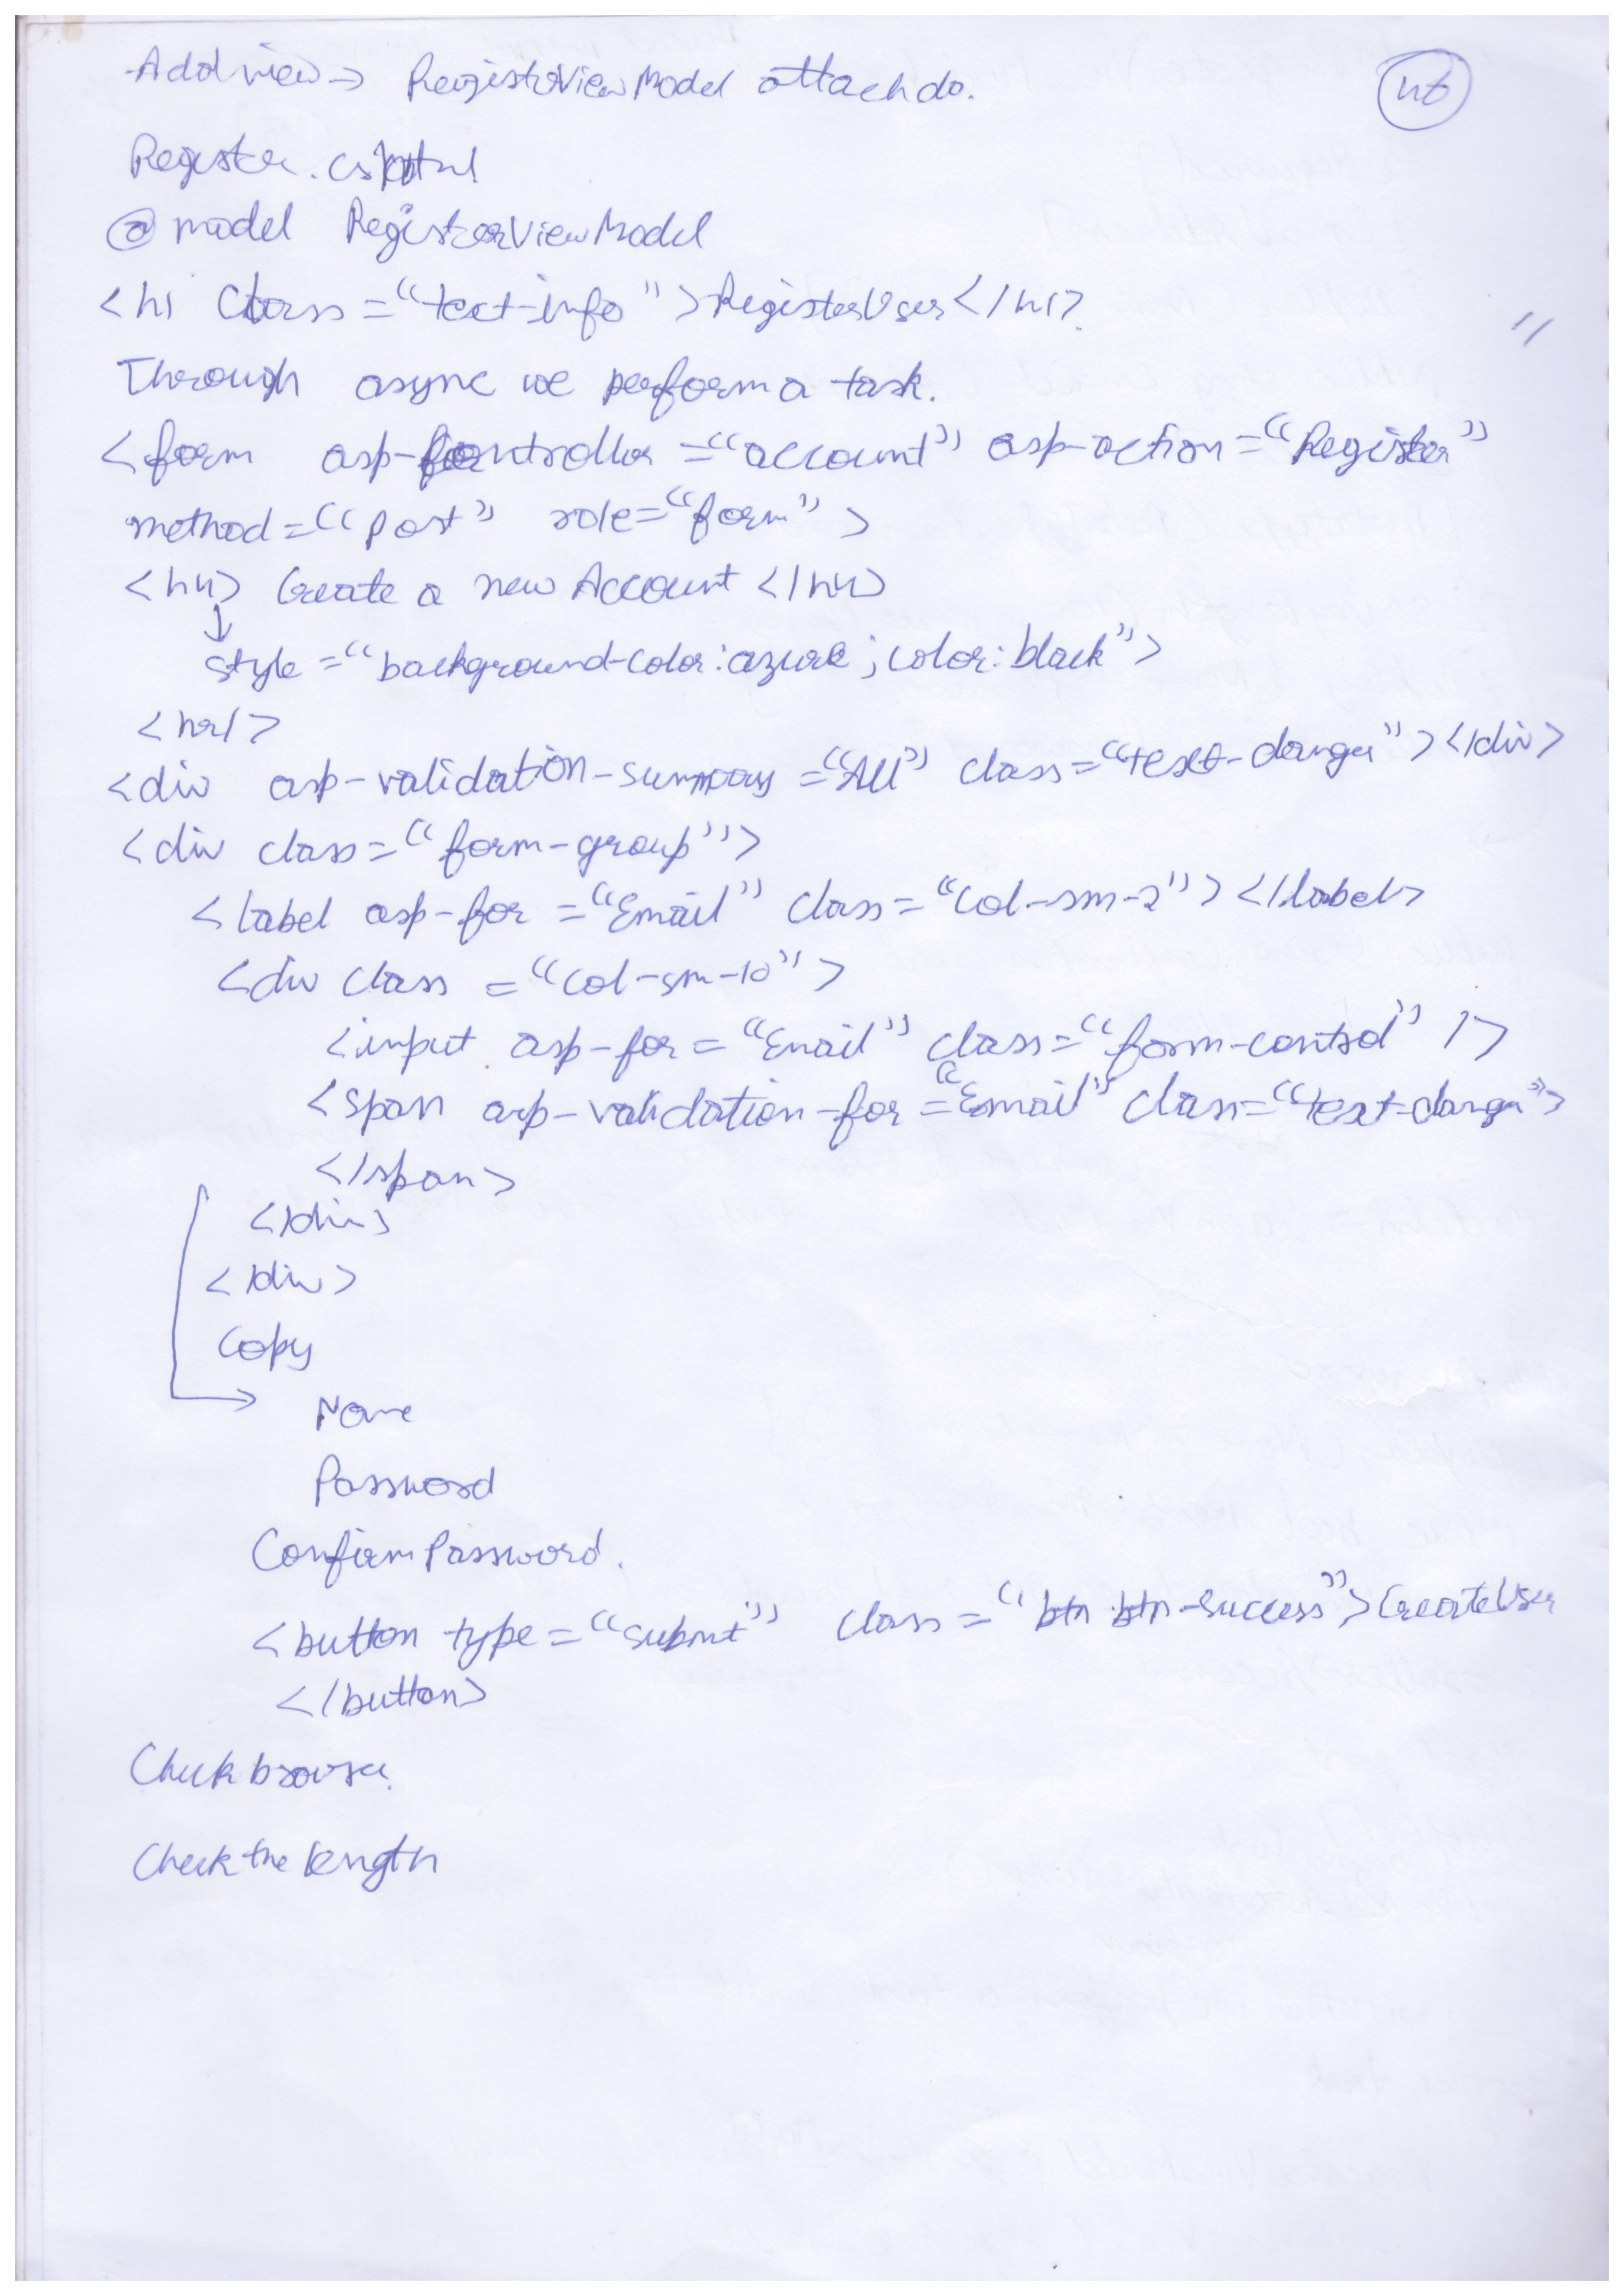 Add view → RegisterViewModel attach do.
46
Register.cshtml
@model RegisterViewModel
<h1 class="text-info">RegisterUser</h1>
Through async we perform a task.
<form asp-controller="account" asp-action="Register"
method="post" role="form">
<h4> Create a new Account </h4>
↓
style="background-color:azure;color:black">
<hr/>
<div asp-validation-summary="All" class="text-danger"></div>
<div class="form-group">
<label asp-for="Email" class="col-sm-2"></label>
<div class="col-sm-10">
<input asp-for="Email" class="form-control" />
<span asp-validation-for="Email" class="text-danger">
</span>
</div>
</div>
Copy
→ Name
Password
ConfirmPassword.
<button type="submit" class="btn btn-success">CreateUser
</button>
Check browser.
Check the length